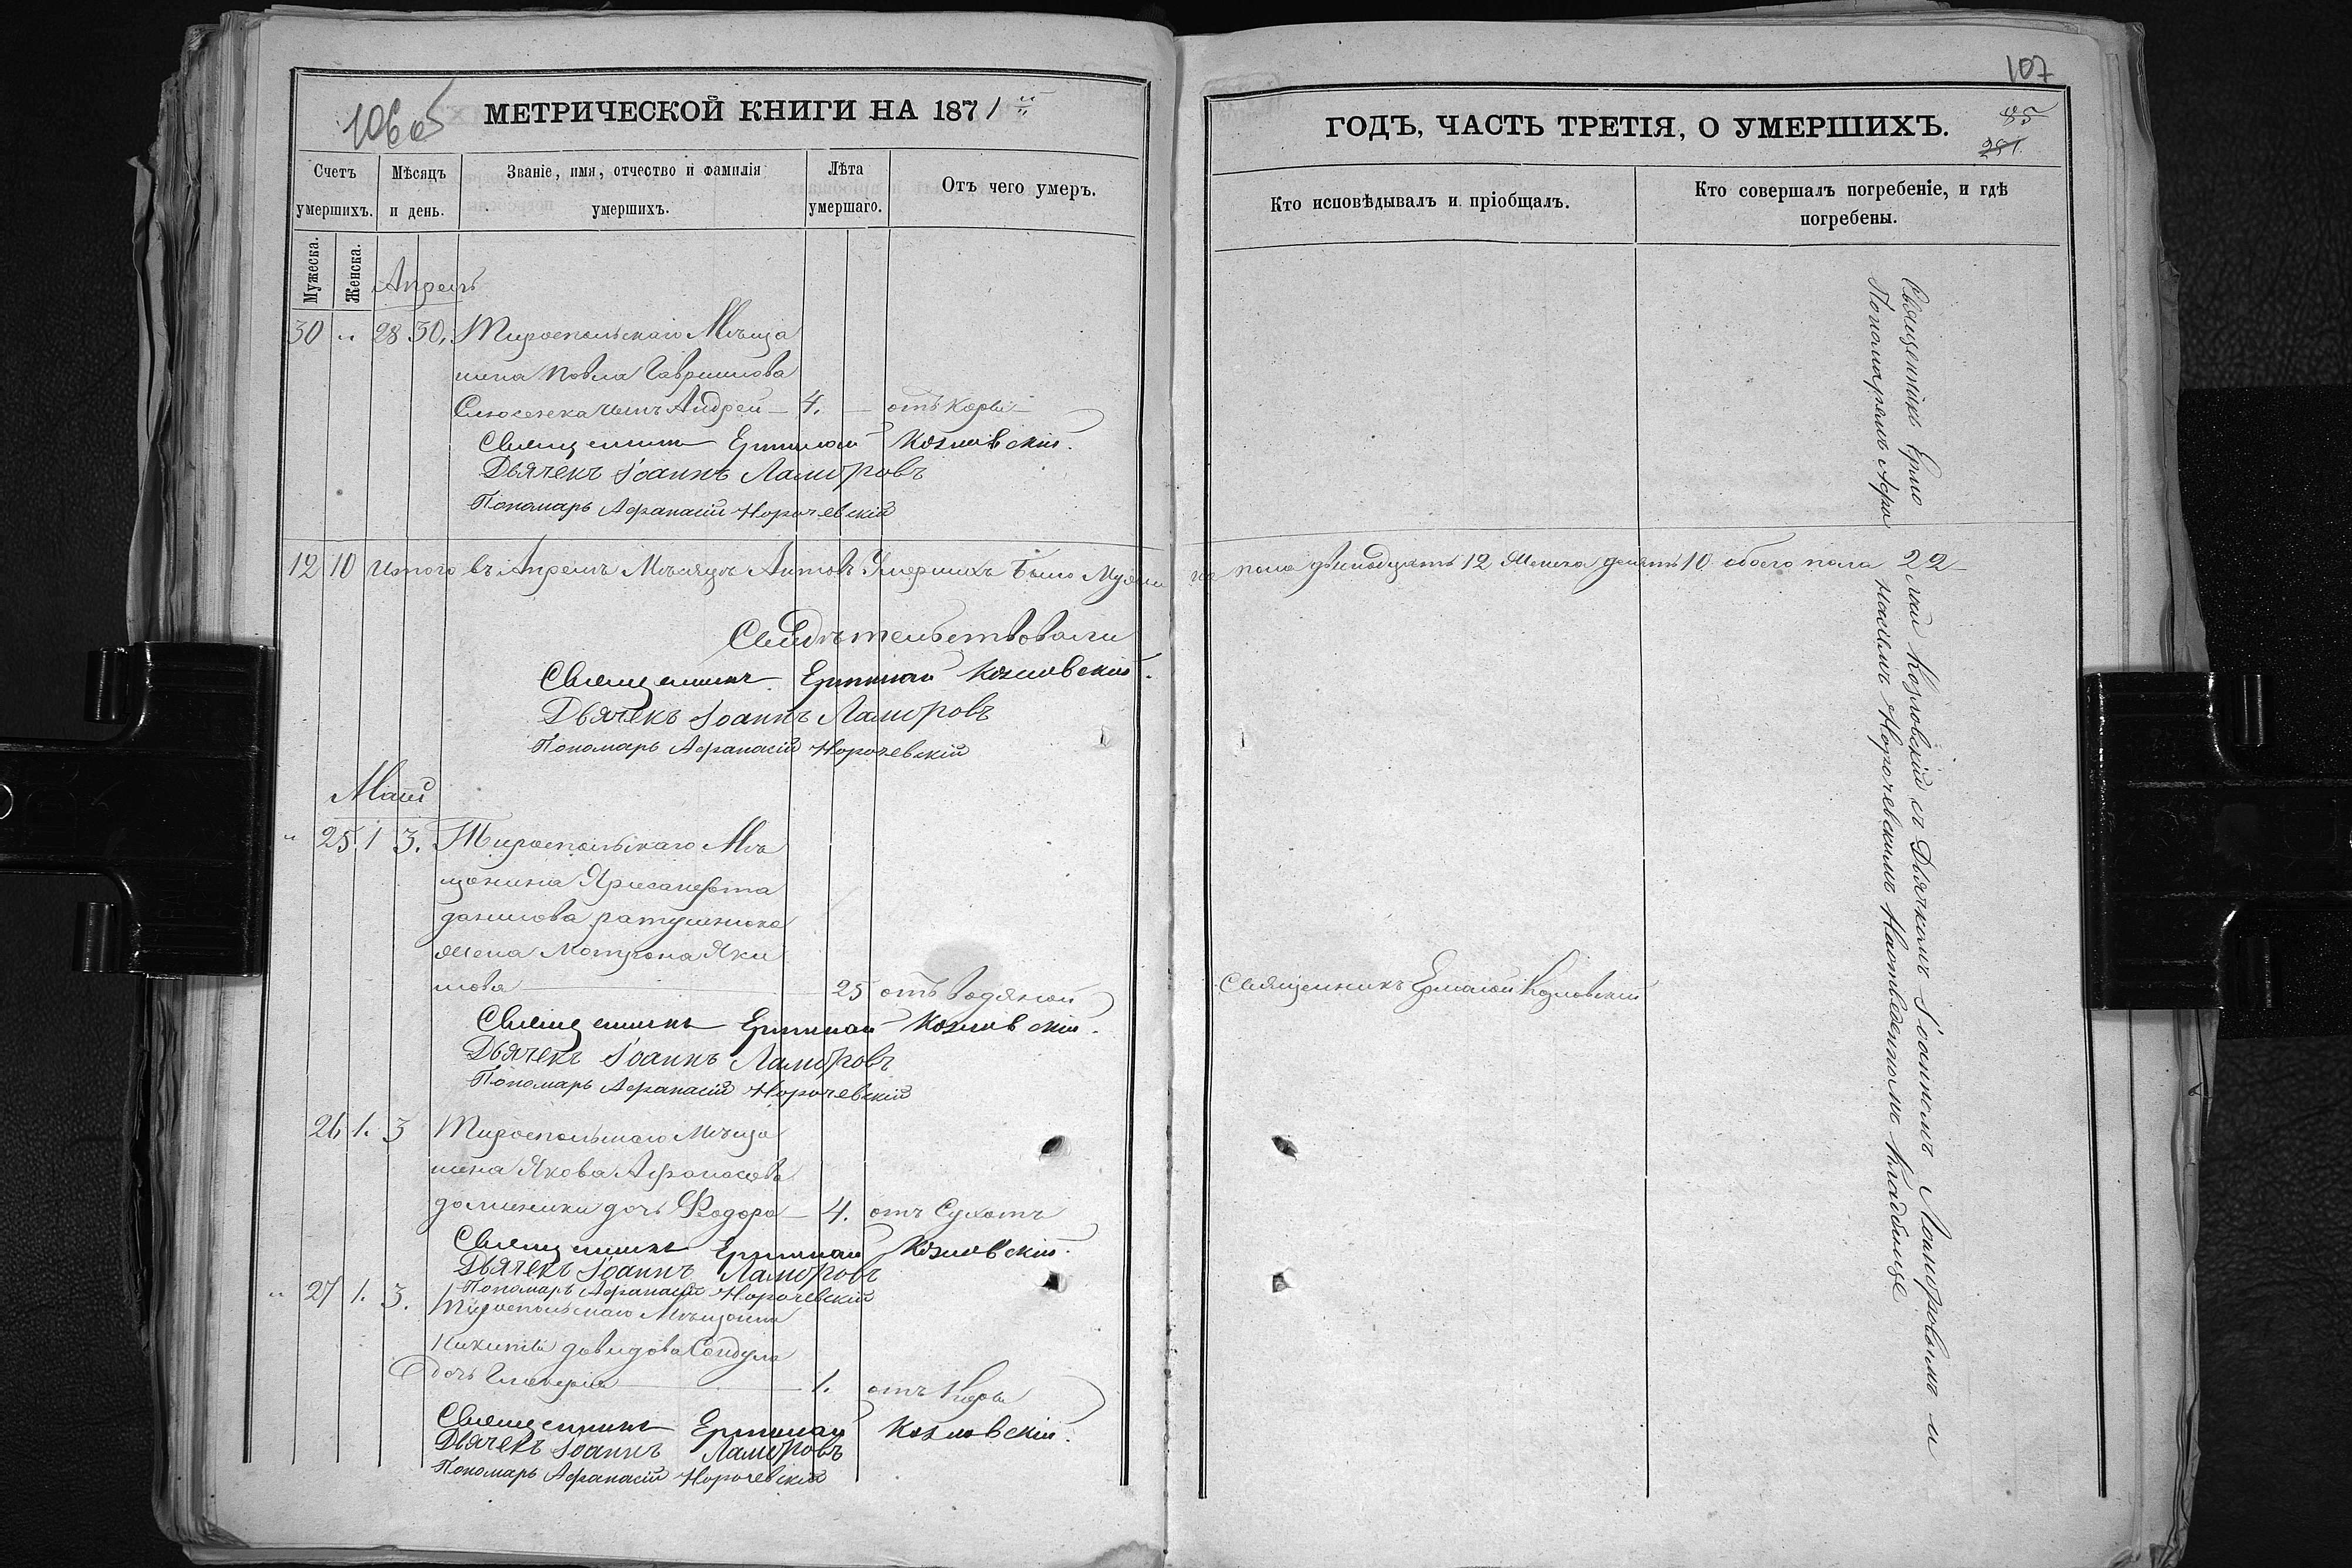 106 об
МЕТРИЧЕСКОЙ КНИГИ НА 1871й
Счетъ умершихъ.
Мѣсяцъ и день.
Званіе, имя, отчество и фамилія умершихъ.
Лѣта умершаго.
Отъ чего умеръ.
Мужеска.
Женска.
Апрель
30 " 28 30. Тироспольскаго Мѣща
нина Повла Гаврилова
сынъ Андрей — 4. — отъ Кори
Священникъ Ермолай Козловскій.
Дьячекъ Іоаннъ Ламбровъ
Пономарь Афанасій Норочевскій
12 10 Итого въ Апрелѣ Мѣсяцѣ Умершихъ Было Муже
Свидѣтельствовали
Священникъ Ермолай Козловскій.
Дьячекъ Іоаннъ Ламбровъ
Пономарь Афанасій Норочевскій
Маій
" 25 1 3. Тироспольскаго Мѣ
щонина Хрисанфота
данилова ратушнюка
жена Мотрона Яки
мова — 25 отъ Водяной
Священникъ Ермолай Козловскій.
Дьячекъ Іоаннъ Ламбровъ
Пономарь Афанасій Норочевскій
26 1. 3 Тироспольскаго Мѣща
нина Якова Афонасова
дочь Федора — 4. отъ Сухотъ
Священникъ Ермолай Козловскій.
Дьячекъ Іоаннъ Ламбровъ
Пономарь Афанасій Норочевскій
" 27 1. 3. Тироспольскаго Мѣщонина
Никиты довидова Сандула
дочь Гликерія — 1. отъ Кори
Священникъ Ермолай Козловскій.
Дьячекъ Іоаннъ Ламбровъ
Пономарь Афанасій Норочевскій
107
ГОДЪ, ЧАСТЬ ТРЕТІЯ, О УМЕРШИХЪ.
85
281.
Кто исповѣдывалъ и пріобщалъ.
Кто совершалъ погребеніе, и гдѣ погребены.
ка пола двенадцать 12 Женска десять 10 обоего пола 22
Священникъ Ермолай Козловскій
Священникъ Ермолай Козловскій съ Дьячкомъ Іоанномъ Ламбровымъ и
Пономаремъ Афанасіемъ Норочевскимъ На отведенномъ Кладбище